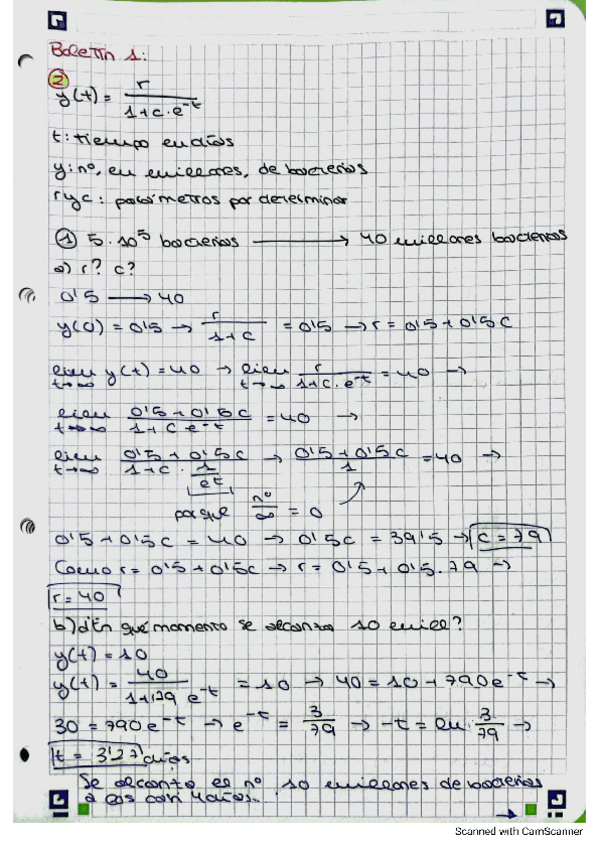 Boletín 1:
②
y(t) = r / (1 + c · e^-t)
t: tiempo en días
y: nº, en millones, de bacterias
r y c: parámetros por determinar
① 5 · 10^5 bacterias → 40 millones bacterias
a) r? c?
0'5 → 40
y(0) = 0'5 → r / (1 + c) = 0'5 → r = 0'5 + 0'5c
lim t→∞ y(t) = 40 → lim t→∞ r / (1 + c · e^-t) = 40 →
lim t→∞ (0'5 + 0'5c) / (1 + c e^-t) = 40 →
lim t→∞ (0'5 + 0'5c) / (1 + c · 1/e^t) → (0'5 + 0'5c) / 1 = 40 →
porque nº/∞ = 0
0'5 + 0'5c = 40 → 0'5c = 39'5 → c = 79
Como r = 0'5 + 0'5c → r = 0'5 + 0'5 · 79 →
r = 40
b) d En qué momento se alcanza 10 mill?
y(t) = 10
y(t) = 40 / (1 + 79 e^-t) = 10 → 40 = 10 + 790e^-t →
30 = 790e^-t → e^-t = 3/79 → -t = ln 3/79 →
t = 3'27 días
Se alcanza el nº 10 millones de bacterias
a los casi 4 días.
→
Scanned with CamScanner